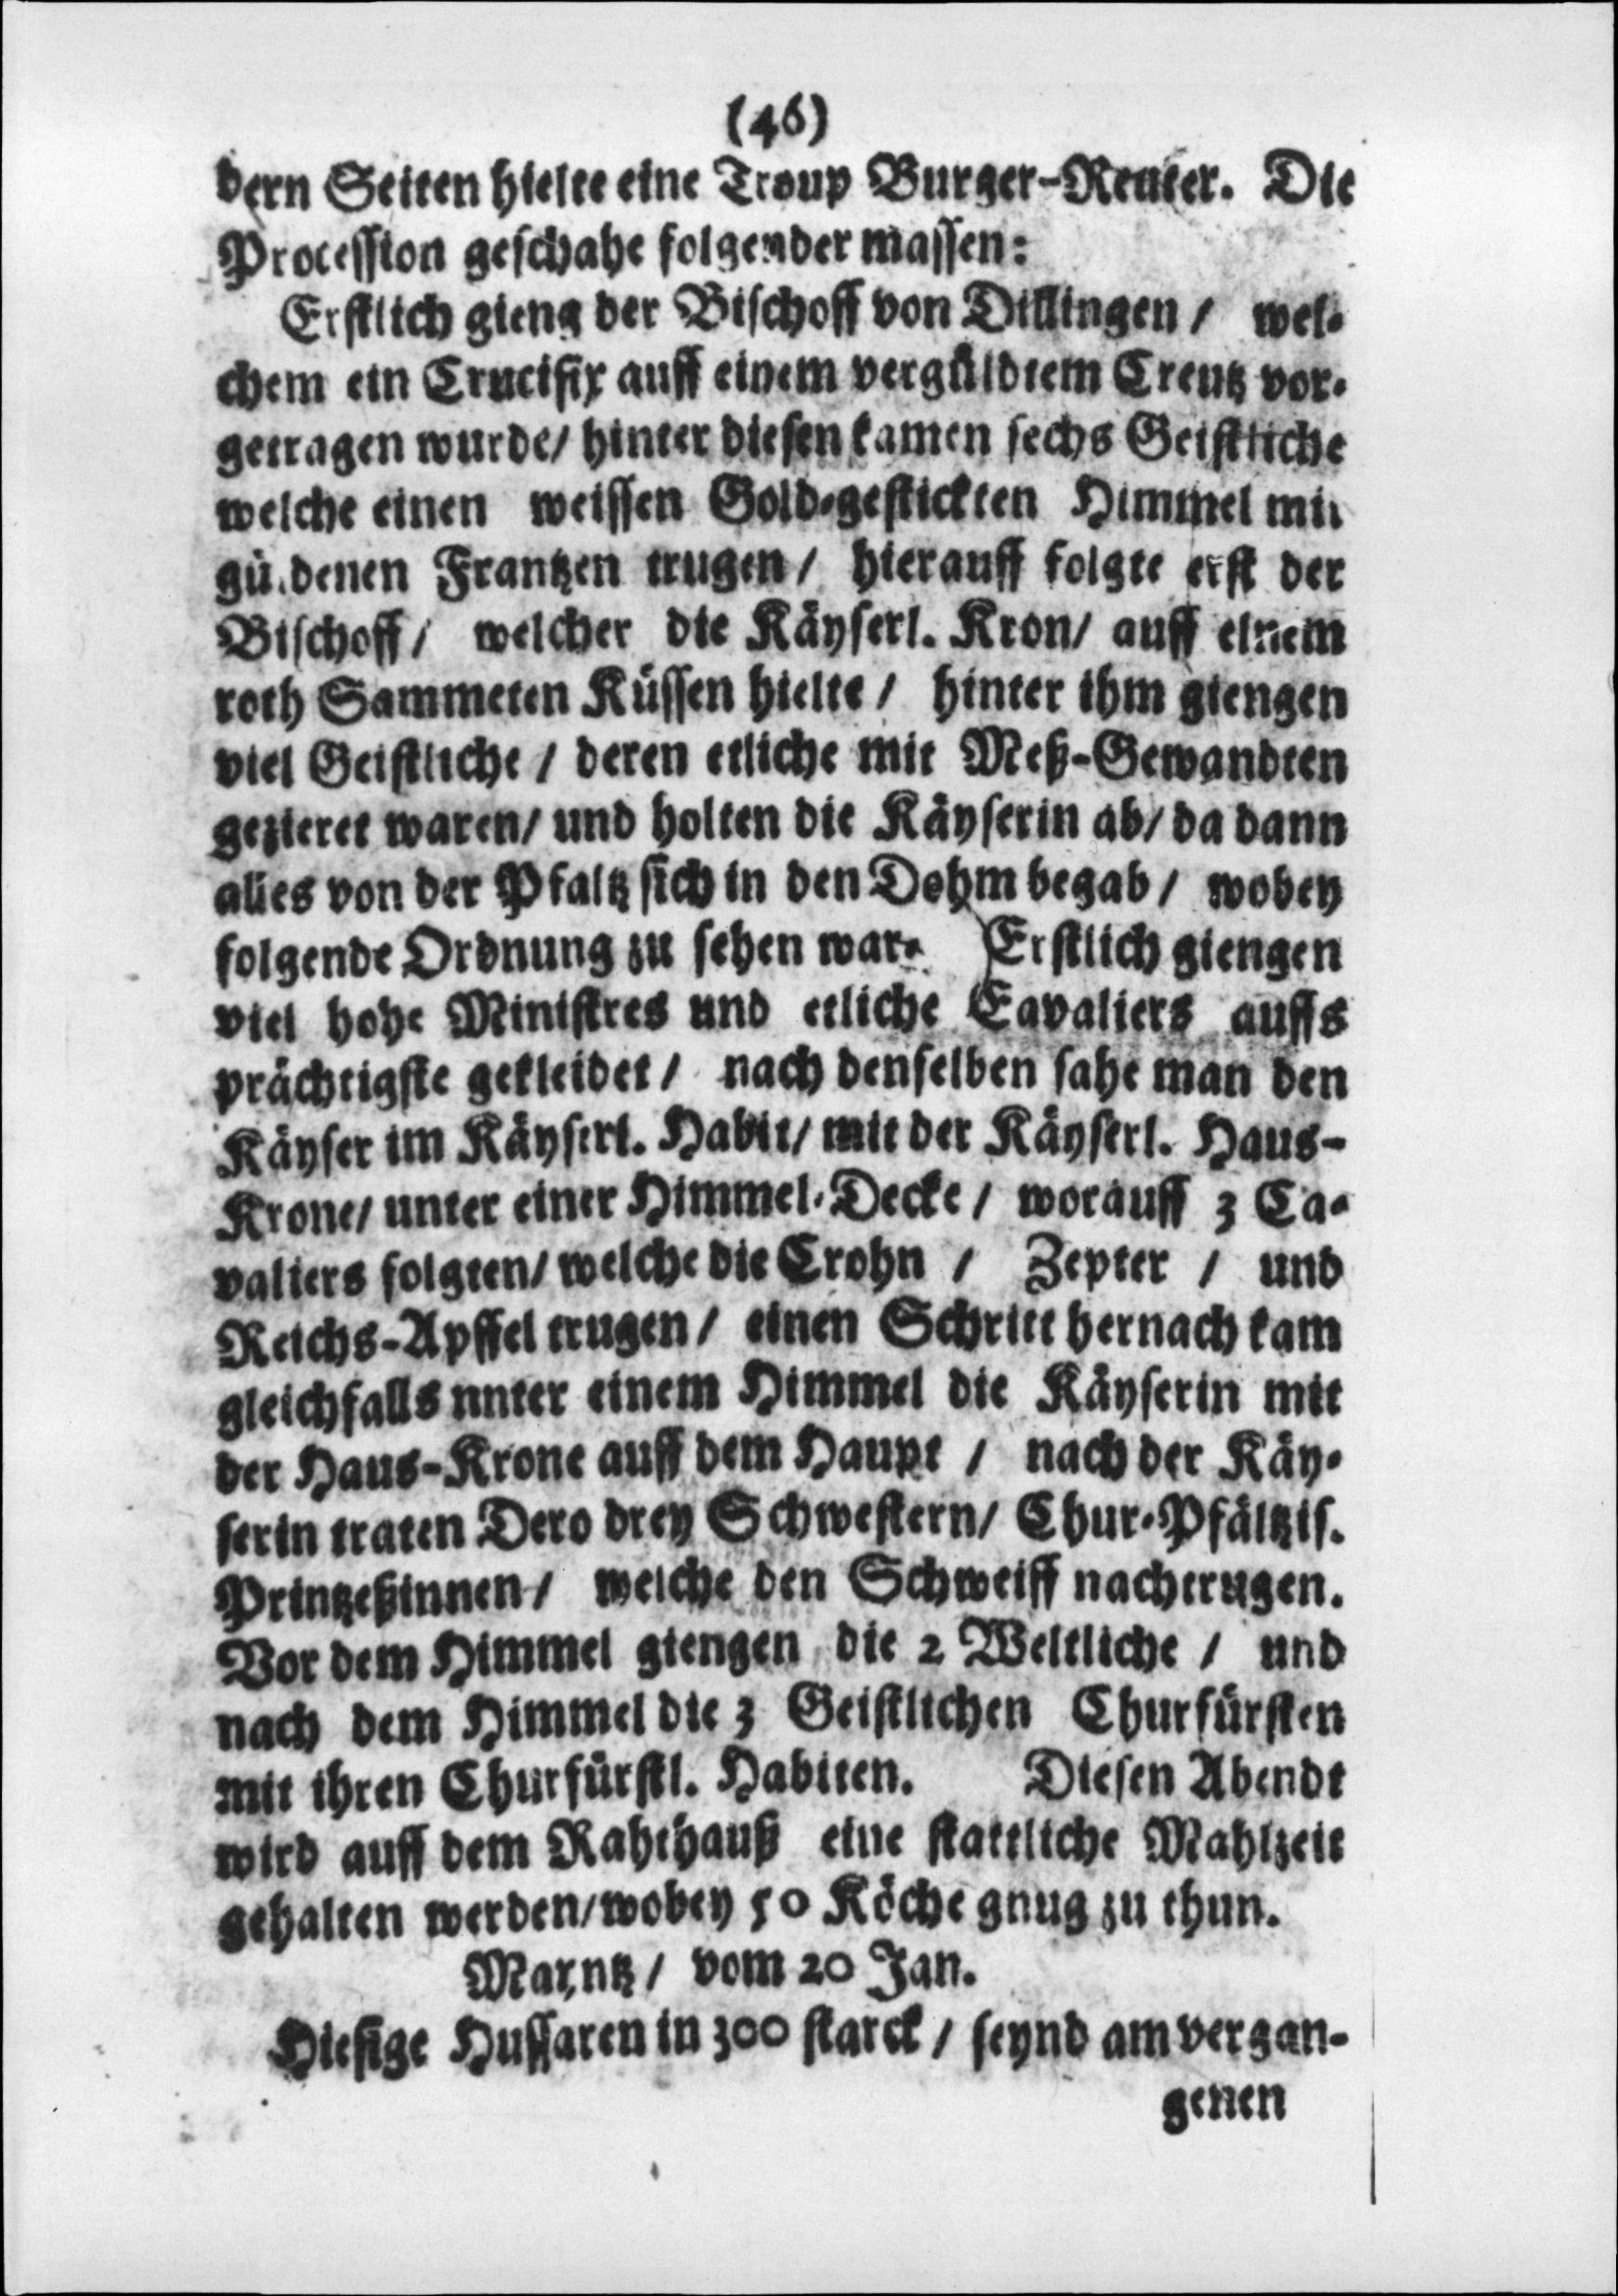 (46)
dern Seiten hielte eine Troup Burger-Reuter. Die
Procession geschahe folgender massen:
Erstlich gieng der Bischoff von Dillingen / wel-
chem ein Crucifix auff einem vergüldtem Creutz vor-
getragen wurde/ hinter diesen kamen sechs Geistliche
welche einen weissen Gold-gestickten Himmel mit
güldenen Frantzen trugen / hierauff folgte erst der
Bischoff / welcher die Käyserl. Kron/ auff einem
roth Sammeten Küssen hielte / hinter ihm giengen
viel Geistliche / deren etliche mit Meß-Gewandten
gezieret waren/ und holten die Käyserin ab/ da dann
alles von der Pfaltz sich in den Dohm begab / wobey
folgende Ordnung zu sehen war. Erstlich giengen
viel hohe Ministres und etliche Cavaliers auffs
prächtigste gekleidet / nach denselben sahe man den
Käyser im Käyserl. Habit/ mit der Käyserl. Haus-
Krone/ unter einer Himmel-Decke / worauff 3 Ca-
valiers folgten/ welche die Crohn / Zepter / und
Reichs-Apffel trugen / einen Schritt hernach kam
gleichfalls nnter einem Himmel die Käyserin mit
der Haus-Krone auff dem Haupt / nach der Käy-
serin traten Dero drey Schwestern/ Chur-Pfältzis.
Printzeßinnen / welche den Schweiff nachtrugen.
Vor dem Himmel giengen die 2 Weltliche / und
nach dem Himmel die 3 Geistlichen Churfürsten
mit ihren Churfürstl. Habiten. Diesen Abendt
wird auff dem Rahthauß eine stattliche Mahlzeit
gehalten werden/wobey 50 Köche gnug zu thun.
Mayntz / vom 20 Jan.
Hiesige Hussaren in 300 starck / seynd am vergan-
genen